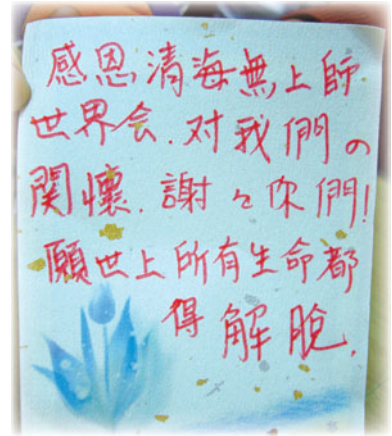 感恩清海無上師
世界会.对我們の
関懷.謝々你們!
願世上所有生命都
得解脫.